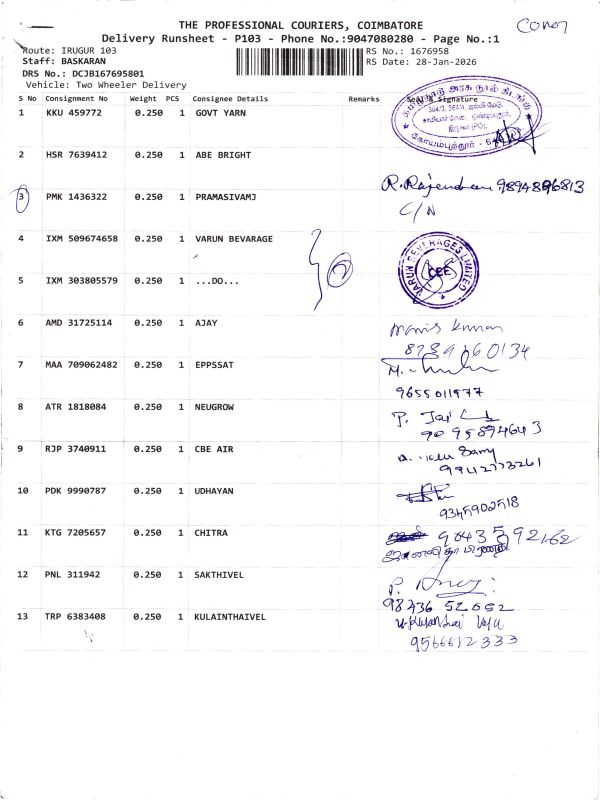 THE PROFESSIONAL COURIERS, COIMBATORE
Cover
Delivery Runsheet - P103 - Phone No.:9047080280 - Page No.:1
Route: IRUGUR 103
RS No.: 1676958
Staff: BASKARAN
RS Date: 28-Jan-2026
DRS No.: DCJB167695801
Vehicle: Two Wheeler Delivery
S No Consignment No Weight PCS Consignee Details Remarks Seal & Signature
1 KKU 459772 0.250 1 GOVT YARN
2 HSR 7639412 0.250 1 ABE BRIGHT
R. Rajendran 9894896813
3 PMK 1436322 0.250 1 PRAMASIVAMJ
C/N
4 IXM 509674658 0.250 1 VARUN BEVARAGE
VARUN BEVERAGES LIMITED
CBE
2
5 IXM 303805579 0.250 1 ...DO...
6 AMD 31725114 0.250 1 AJAY
Kumar
7 MAA 709062482 0.250 1 EPPSSAT
9655011977
8 ATR 1818084 0.250 1 NEUGROW
P. Jai
9095894643
9 RJP 3740911 0.250 1 CBE AIR
Samy
9942773261
10 PDK 9990787 0.250 1 UDHAYAN
9345902518
11 KTG 7205657 0.250 1 CHITRA
9043592162
12 PNL 311942 0.250 1 SAKTHIVEL
98436 52052
13 TRP 6383408 0.250 1 KULAINTHAIVEL
9566612333